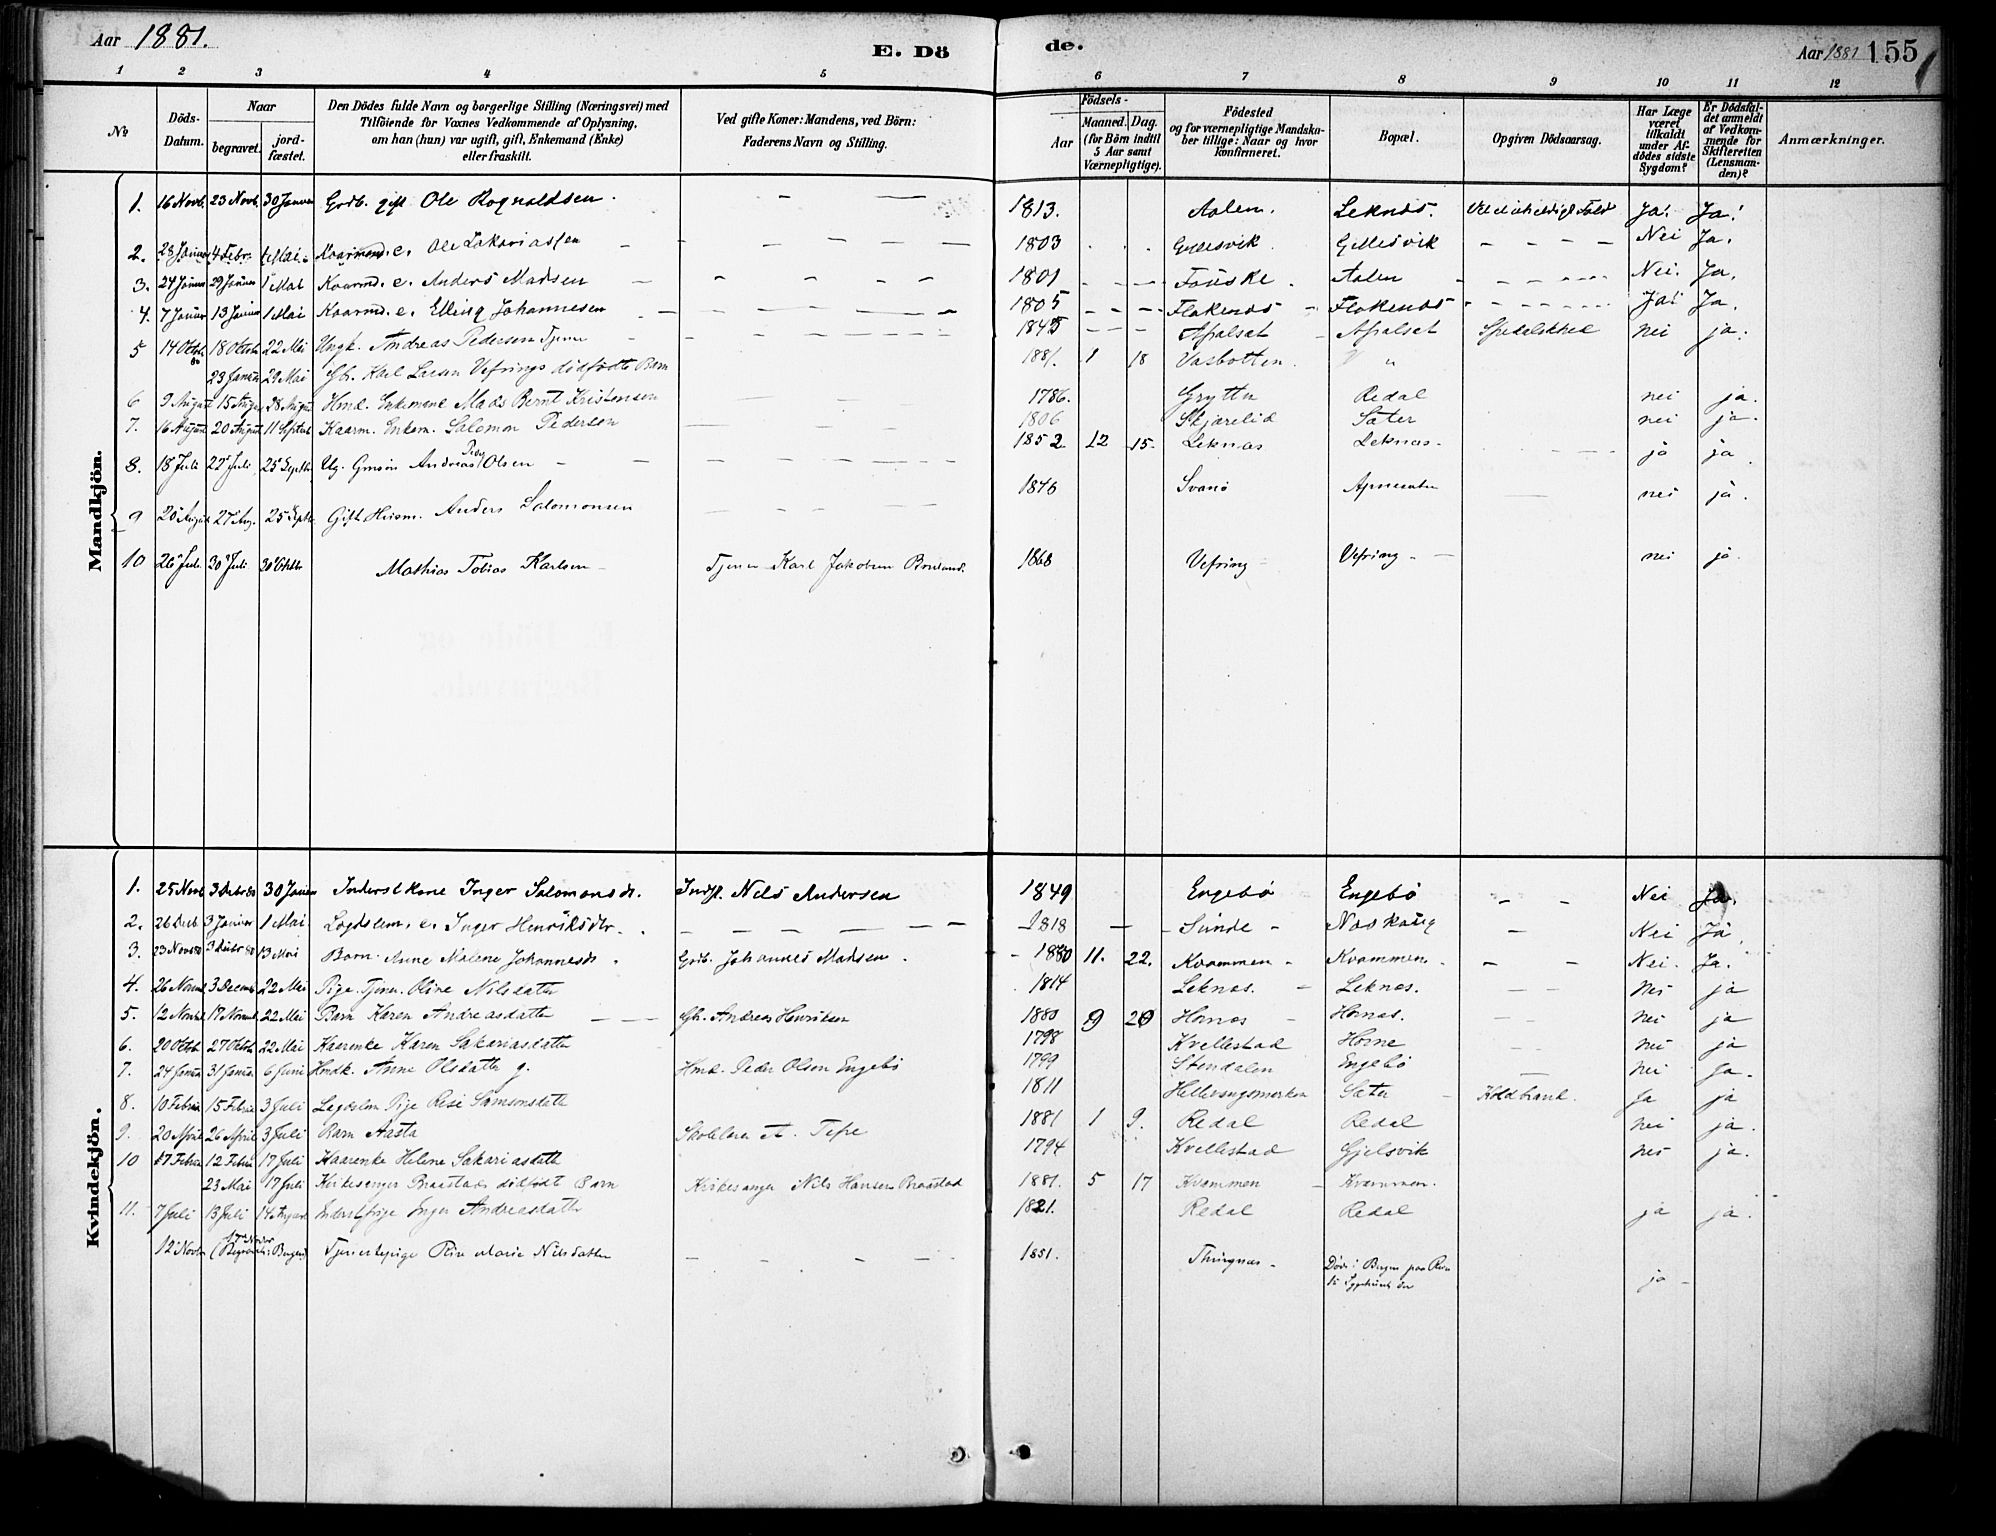 Aar 1881.
E. Dö
de.
Aar 1881 155
1 2 3 4 5 6 7 8 9 10 11 12
No
Döds-Datum.
Naar
begravet.
jord-fæstet.
Den Dödes fulde Navn og borgerlige Stilling (Næringsvei) med
Tilföiende for Voxnes Vedkommende af Oplysning,
om han (hun) var ugift, gift, Enkemand (Enke)
eller fraskilt.
Ved gifte Koner: Mandens, ved Börn:
Faderens Navn og Stilling.
Födsels-
Aar
Maaned. Dag.
(for Börn indtil
5 Aar samt
Værnepligtige).
Födested
og for værnepligtige Mandska-
ber tillige: Naar og hvor
konfirmeret.
Bopæl.
Opgiven Dödsaarsag.
Har Læge
været
tilkaldt
under Af-
dödes sidste
Sygdom?
Er Dödsfal-
det anmeldt
af Vedkom-
mende for
Skifteretten
(Lensman-
den)?
Anmærkninger.
Mandkjön.
1. 16 Novb. 23 Novb. 30 Januar Grdb. gift Ole Rognaldsen. 1813. Aalen. Leknes. Ja! Ja!
2. 28 Januar 4 Febr. 1 Mai Kaarmand. e. Ole Zakariassen 1803 Gjellesvik Gjellesvik Nei Ja.
3. 24 Januar 29 Januar 1 Mai Kaarmd. e. Anders Madsen 1801 Fauske Aalen Nei. Ja.
4. 7 Januar 13 Januar 1 Mai Kaarmd. e. Elling Johannesen 1805 Flokenes Flokenes Ja! Ja.
5 14 Oktbr. 80 18 Oktbr. 22 Mai Ungk. Andreas Pedersen Tjener 1845 Apalset Apalset Spedalskhed nei ja.
23 Januar 29 Mai Gb. Karl Larsen Vefrings dödfödte Barn 1881. 1 18 Vasbotten "
6 9 August 15 August 28 August Hmd. Enkemand Mads Bernt Kristensen 1786. Grytten Redal nei ja.
7. 16 August 20 August 11 Septbr Kaarm. Enkem. Salomon Pedersen 1806 Skjærelid Sæter nei ja.
8. 18 Juli 22 Juli 25 Septbr Ug. Gmsön Andreas Olsen 1852. 12 15. Leknæs Leknæs. ja ja.
9 20 August 27 Aug. 25 Septbr Gift Husm. Anders Salomonsen 1846 Svanö nei ja.
10 26 Juli 30 Juli 30 Oktbr Mathias Tobias Karlsen Tjener Karl Jakobsen 1868 Vefring Vefring nei ja
Kvindekjön.
1. 25 Novb 3 Debr 30 Januar Inderstkone Inger Salomonsdr. Indst. Nels Andersen 1849 Engebö Engebö Nei Ja.
2. 26 Decb 3 Januar 1 Mai. Lægdslem. e. Inger Henriksdtr. 1818 Sunde Naskaug Nei Ja.
3. 23 Novbr 3 Debr 80 13 Mai Barn Anne Malene Johannesdr. Grdb. Johannes Madsen. 1880 11. 22. Kvammen Kvammen Nei. Ja.
4. 26 Novemb 3 Decemb 22 Mai Pige. Tjener. Oline Nilsdatter 1814 Leknæs. Leknæs. nei ja
5. 12 Novbr 17 Novemb. 22 Mai Barn Karen Andreasdatter Gb. Andreas Henriksen 1880 9 20 Hornæs Hornæs. nei ja
6. 20 Oktob. 27 Oktbr 22 Mai Kaarenke Karen Sakariasdatter 1798 Kvellestad Horne nei ja
7. 24 Januar 31 Januar 6 Juni Hmdk. Anne Olsdatter g. Hmd. Peder Olsen Engebö 1799 Stendalen Engebö nei Ja.
8. 10 Februar 15 Februar 3 Juli Lægdslem Pige Rese Samsonsdatter 1811 Sæter Koldbrand. Ja ja
9. 20 April 26 April 3 Juli Barn Aasta Skolelærer A. Tefre 1881 1 9. Redal Redal nei ja.
10 7 Februar 12 Februar 17 Juli Kaarenke Helene Sakariasdatter 1794 Kvellestad Gjelsvik nei ja.
23 Mai 17 Juli Kirkesanger Braastads dödfödt Barn Kirkesanger Nils Hansen Braastad 1881. 5 17 Kvammen Kvammen.
11. 7 Juli 13 Juli 14 August Inderst Pige Inger Andreasdatter 1821. Redal Redal ja ja.
12 Novbr 17 Novbr (Begravet i Bergen) Tjenestepige Marie Nilsdatter 1851. Thingnæs Död i Bergen paa ja